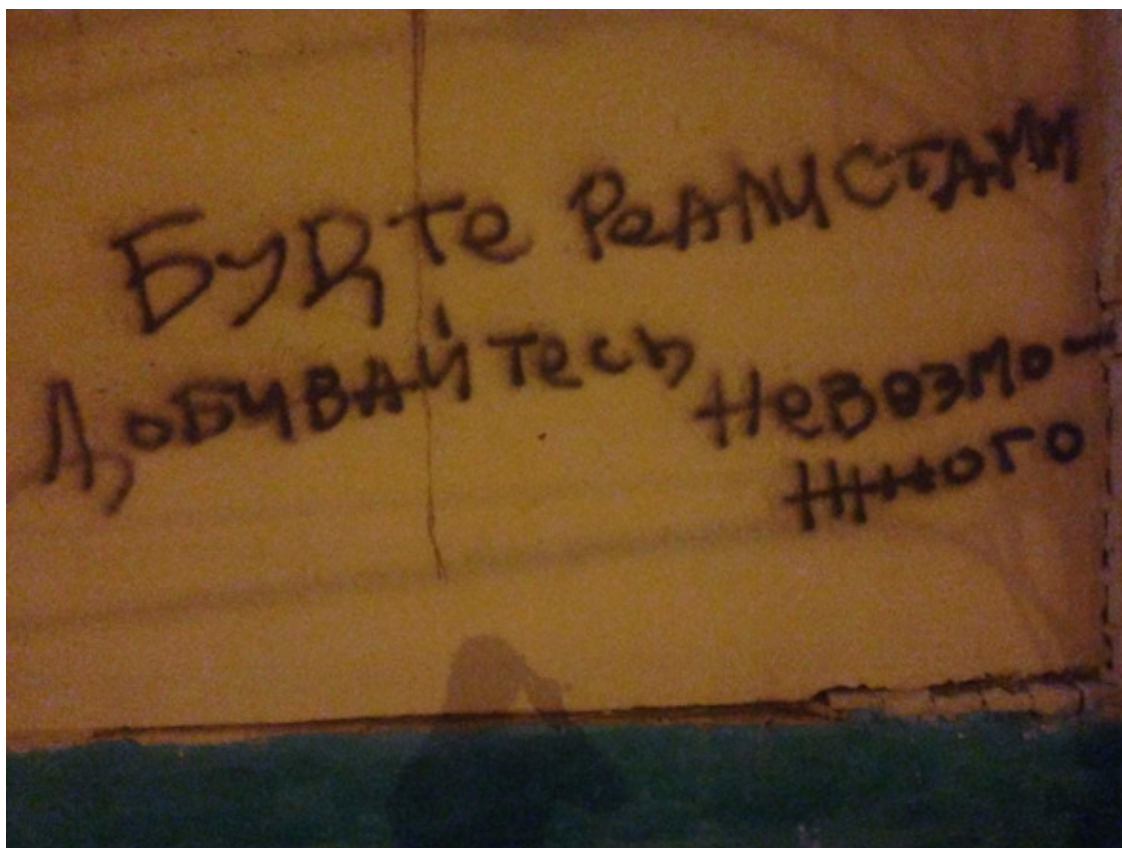 Будте реалистами
Добивайтесь невозмо-
жного